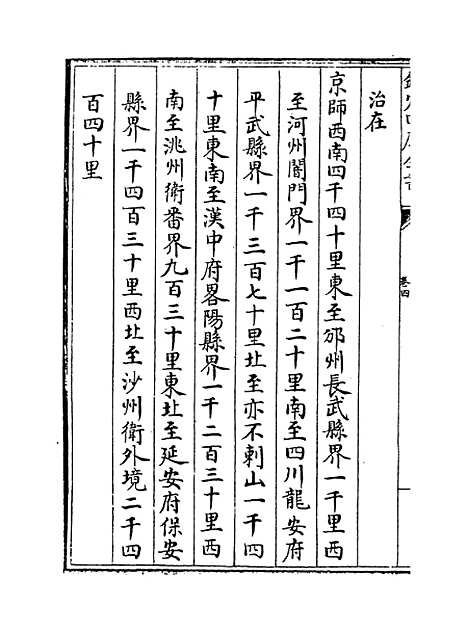 欽定四庫全書
卷四
治在
京師西南四千四十里東至邠州長武縣界一千里西
至河州闇門界一千一百二十里南至四川龍安府
平武縣界一千三百七十里北至亦不剌山一千四
十里東南至漢中府畧陽縣界一千二百三十里西
南至洮州衛番界九百三十里東北至延安府保安
縣界一千四百三十里西北至沙州衛外境二千四
百四十里